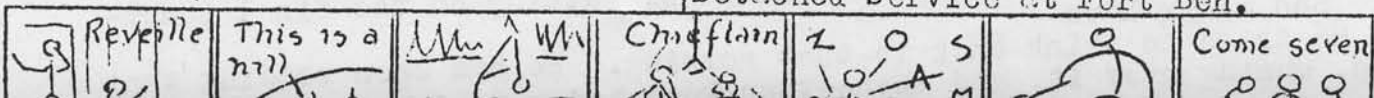 Detached Service at Fort Ben.
Reveille
This is a
hill
Chieftain
Z O S
A
M
Come seven